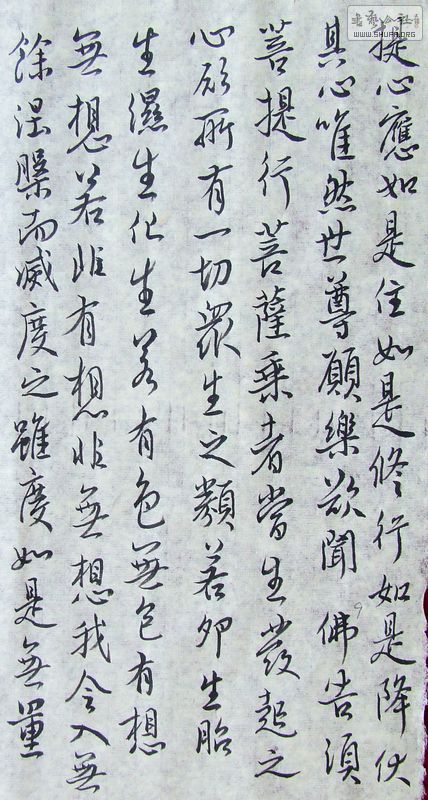 提心應如是住如是修行如是降伏
其心唯然世尊願樂欲聞 佛告須
菩提行菩薩乘者當生發起之
心所有一切眾生之類若卵生胎
生濕生化生若有色無色有想
無想若非有想非無想我令入無
餘涅槃而滅度之雖度如是無量
書藝公社
WWW.SHUFA.ORG